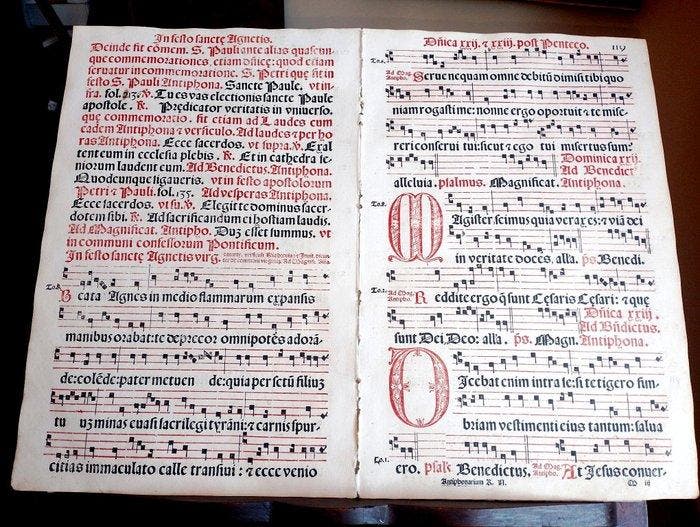 In festo sancte Agnetis.
Deinde fit cōmem. S. Pauli ante alias quascun-
que commemorationes, etiam dñice: quod etiam
seruatur in commemoratione. S. Petri que fit in
festo S. Pauli Antiphona. Sancte Paule. vt in-
fra. fol. V. Tu es vas electionis sancte Paule
apostole. R. Predicator veritatis in vniuerso.
que commemoratio. fit etiam ad Laudes cum
eadem Antiphona & versiculo. Ad laudes & per ho
ras Antiphona. Ecce sacerdos. vt supra. V. Exal
tent eum in ecclesia plebis. R. Et in cathedra se-
niorum laudent eum. Ad Benedictus. Antiphona.
Quodcunque ligaueris. vt in festo apostolorum
Petri & Pauli. fol. 135. Ad vesperas Antiphona.
Ecce sacerdos. vt su. V. Elegit te dominus sacer-
dotem sibi. R. Ad sacrificandum ei hostiam laudis.
Ad Magnificat. Antipho. Dum esset summus. vt
in communi confessorum Pontificum.
In festo sancte Agnetis virg.
To.8.
Beata Agnes in medio flammarum expansis
manibus orabat: te deprecor omnipotēs adorā-
de: colēde: pater metuen de: quia per sctū filiuz
tu uz minas euasi sacrilegi tyrāni: & carnis spur-
citias immaculato calle transiui: & ecce venio
Dñica xxij. & xxiij. post Penteco. 119
Ad Mag. Antipho. Serue nequam omne debitū dimisi tibi quo
niam rogasti me: nonne ergo oportuit & te mise-
reri conserui tui: sicut & ego tui misertus sum:
alleluia. psalmus. Magnificat.
Dominica xxij.
Ad Benedict
Antiphona.
To.8.
Magister scimus quia verax es: & viā dei
in veritate doces, alla. ps. Benedi.
Ad Mag. Antipho. Reddite ergo q̄ sunt Cesaris Cesari: & que
sunt Dei Deo: alla. ps. Magn.
Dñica xxiij.
Ad Bñdictus.
Antiphona.
Dicebat enim intra se: si tetigero fim-
briam vestimenti eius tantum: salua
To.1.
ero. psal. Benedictus. Ad Mag. Antipho. At Jesus conuer-
Antiphonarium R. N.